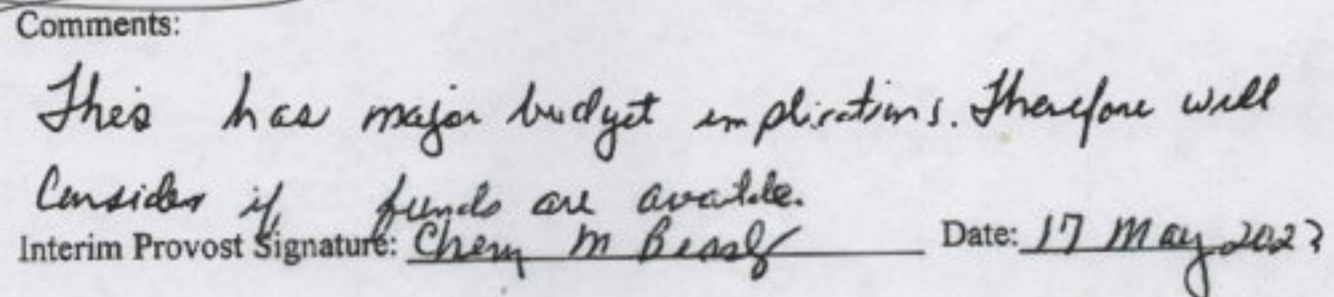 Comments:
This has major budget implications. Therefore will
Consider if funds are availble.
Interim Provost Signature: M Date: 17 May 2023